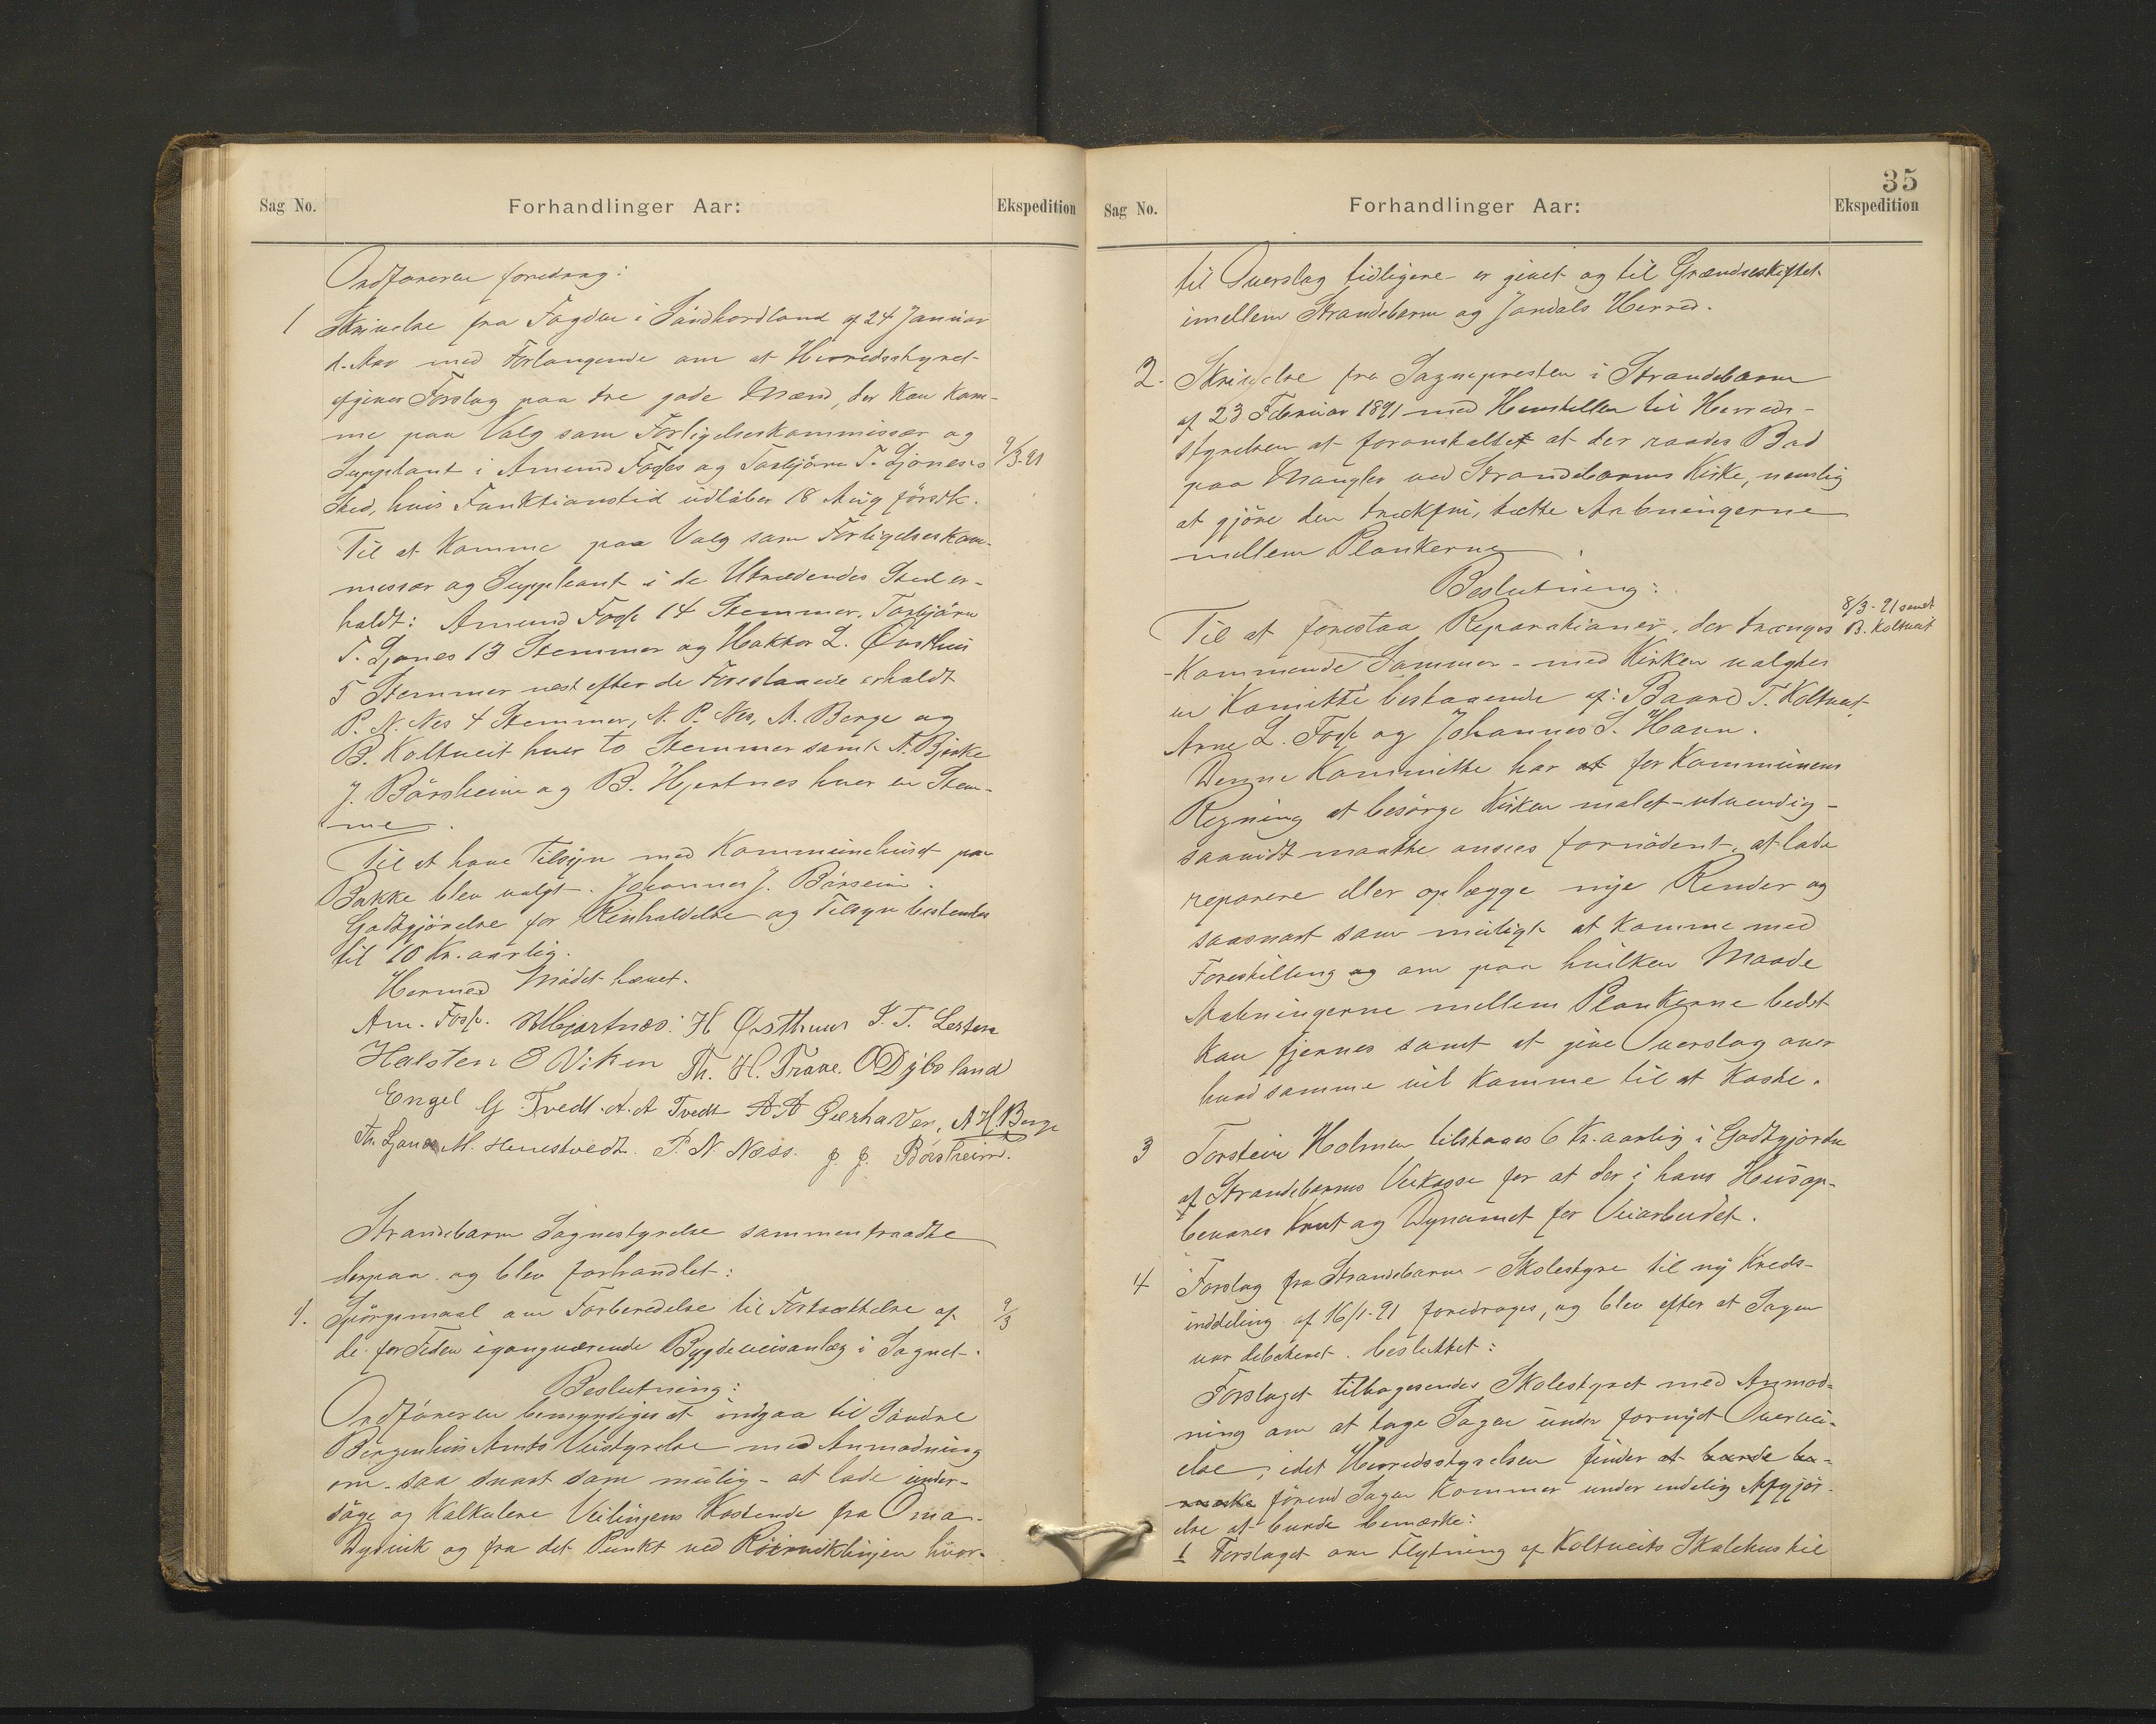 Sag No.
Forhandlinger Aar:
Ekspedition
Ordføreren foredrog:
1 Skrivelse fra Fogden i Söndhordland af 24 Januar
d. Aar med Forlangende om at Herredsstyret
afgiver Forslag paa tre gode Mænd, der kan kom-
me paa Valg som Forligelseskommissær og
Suppleant i Amund Fosse og Torbjörn T. Ljoneses 9/3-91
Sted, hvis Funktionstid udløber 18 Aug förstk.
Til at komme paa Valg som Forligelseskom-
missær og Suppleant i de Utrædendes Sted er-
holdt: Amund Foss 14 Stemmer, Torbjörn
T. Ljones 13 Stemmer og Haktor L. Østhus
5 Stemmer næst efter de Foreslaaede erholdt
P. N. Nes 4 Stemmer, N. P. Nes, A. Berge og
B. Koltveit hver to Stemmer samt N. Bjerke
J. Börsheim og B. Hjertnes hver en Stem-
me.
Til at have Tilsyn med Kommunehuset paa
Bakke blev valgt. Johannes J. Börseim.
Godtgjörelse for Renholdelse og Tilsyn bestemtes
til 10 Kr. aarlig.
Hermed Mödet hævet.
Am. Foss. B Hjartnæs. H Østhuus S. T.
Halsten O Viken Th. H. Trane. O Dybsland
Engel G Tvedt. A. A Tvedt A A Oterhaven, A H. Berge
Th. Ljones M. Henestvedt. P. N Næss. J. J. Börsheim.
Strandebarm Sognestyrelse sammentraadte
derpaa og blev forhandlet:
1. Spörgsmaal om Forberedelse til Fortsættelse af 9/3
de for Tiden igangværende Bygdeveisanlæg i Sognet.
Beslutning:
Ordføreren bemyndiges at indgaa til Söndre
Bergenhus Amts Veistyrelse med Anmodning
om saa snart som mulig - at lade under-
söge og kalkulere Veilinjens Kostende fra Oma-
Dysvik og fra det Punkt ved Röirviklinjen hvor-
35
Sag No.
Forhandlinger Aar:
Ekspedition
til Overslag tidligere er givet og til Grændseskiftet
imellem Strandebarm og Jondals Herred.
2. Skrivelse fra Sognepresten i Strandebarm
af 23 Februar 1891 med Henstillen til Herreds-
styrelsen at foranstaltet at der raades Bod
paa Mangler ved Strandebarms Kirke, nemlig
at gjöre den trækfri, tætte Aabningerne
mellem Plankerne.
Beslutning:
Til at forestaa Reparationer, der trænges 8/3-91 sendt
B. Koltveit
-kommende Sommer- med Kirken valgtes
en Komitté bestaaende af: Baard T. Koltveit,
Arne L. Foss og Johannes S. Haun.
Denne Kommitte har at for Kommunens
Regning at besörge Kirken malet-udvendig-
saavidt maatte ansees fornödent, at lade
reparere eller oplægge nye Render og
saasnart som muligt at komme med
Forestilling og om paa hvilken Maade
Aabningerne mellem Plankerne bedst
kan fjernes samt at give Overslag over
hvad samme vil komme til at koste.
3 Torstein Holmen tilstaaes 6 Kr. aarlig i Godtgjörelse
af Strandebarms Veikasse for at der i hans Hus op-
bevares Krut og Dynamet for Veiarbeidet.
4 Forslag fra Strandebarm-Skolestyre til ny Kreds-
inddeling af 16/1-91 foredroges, og blev efter at Sagen
var debateret. besluttet:
Forslaget tilbagesendes Skolestyret med Anmod-
ning om at tage Sagen under fornyet Overvei-
else, idet Herredsstyrelsen finder at burde be-
mærke förend Sagen kommer under endelig Afgjör-
else at burde bemærke:
1 Forslaget om Flytning af Koltveits Skolehus til